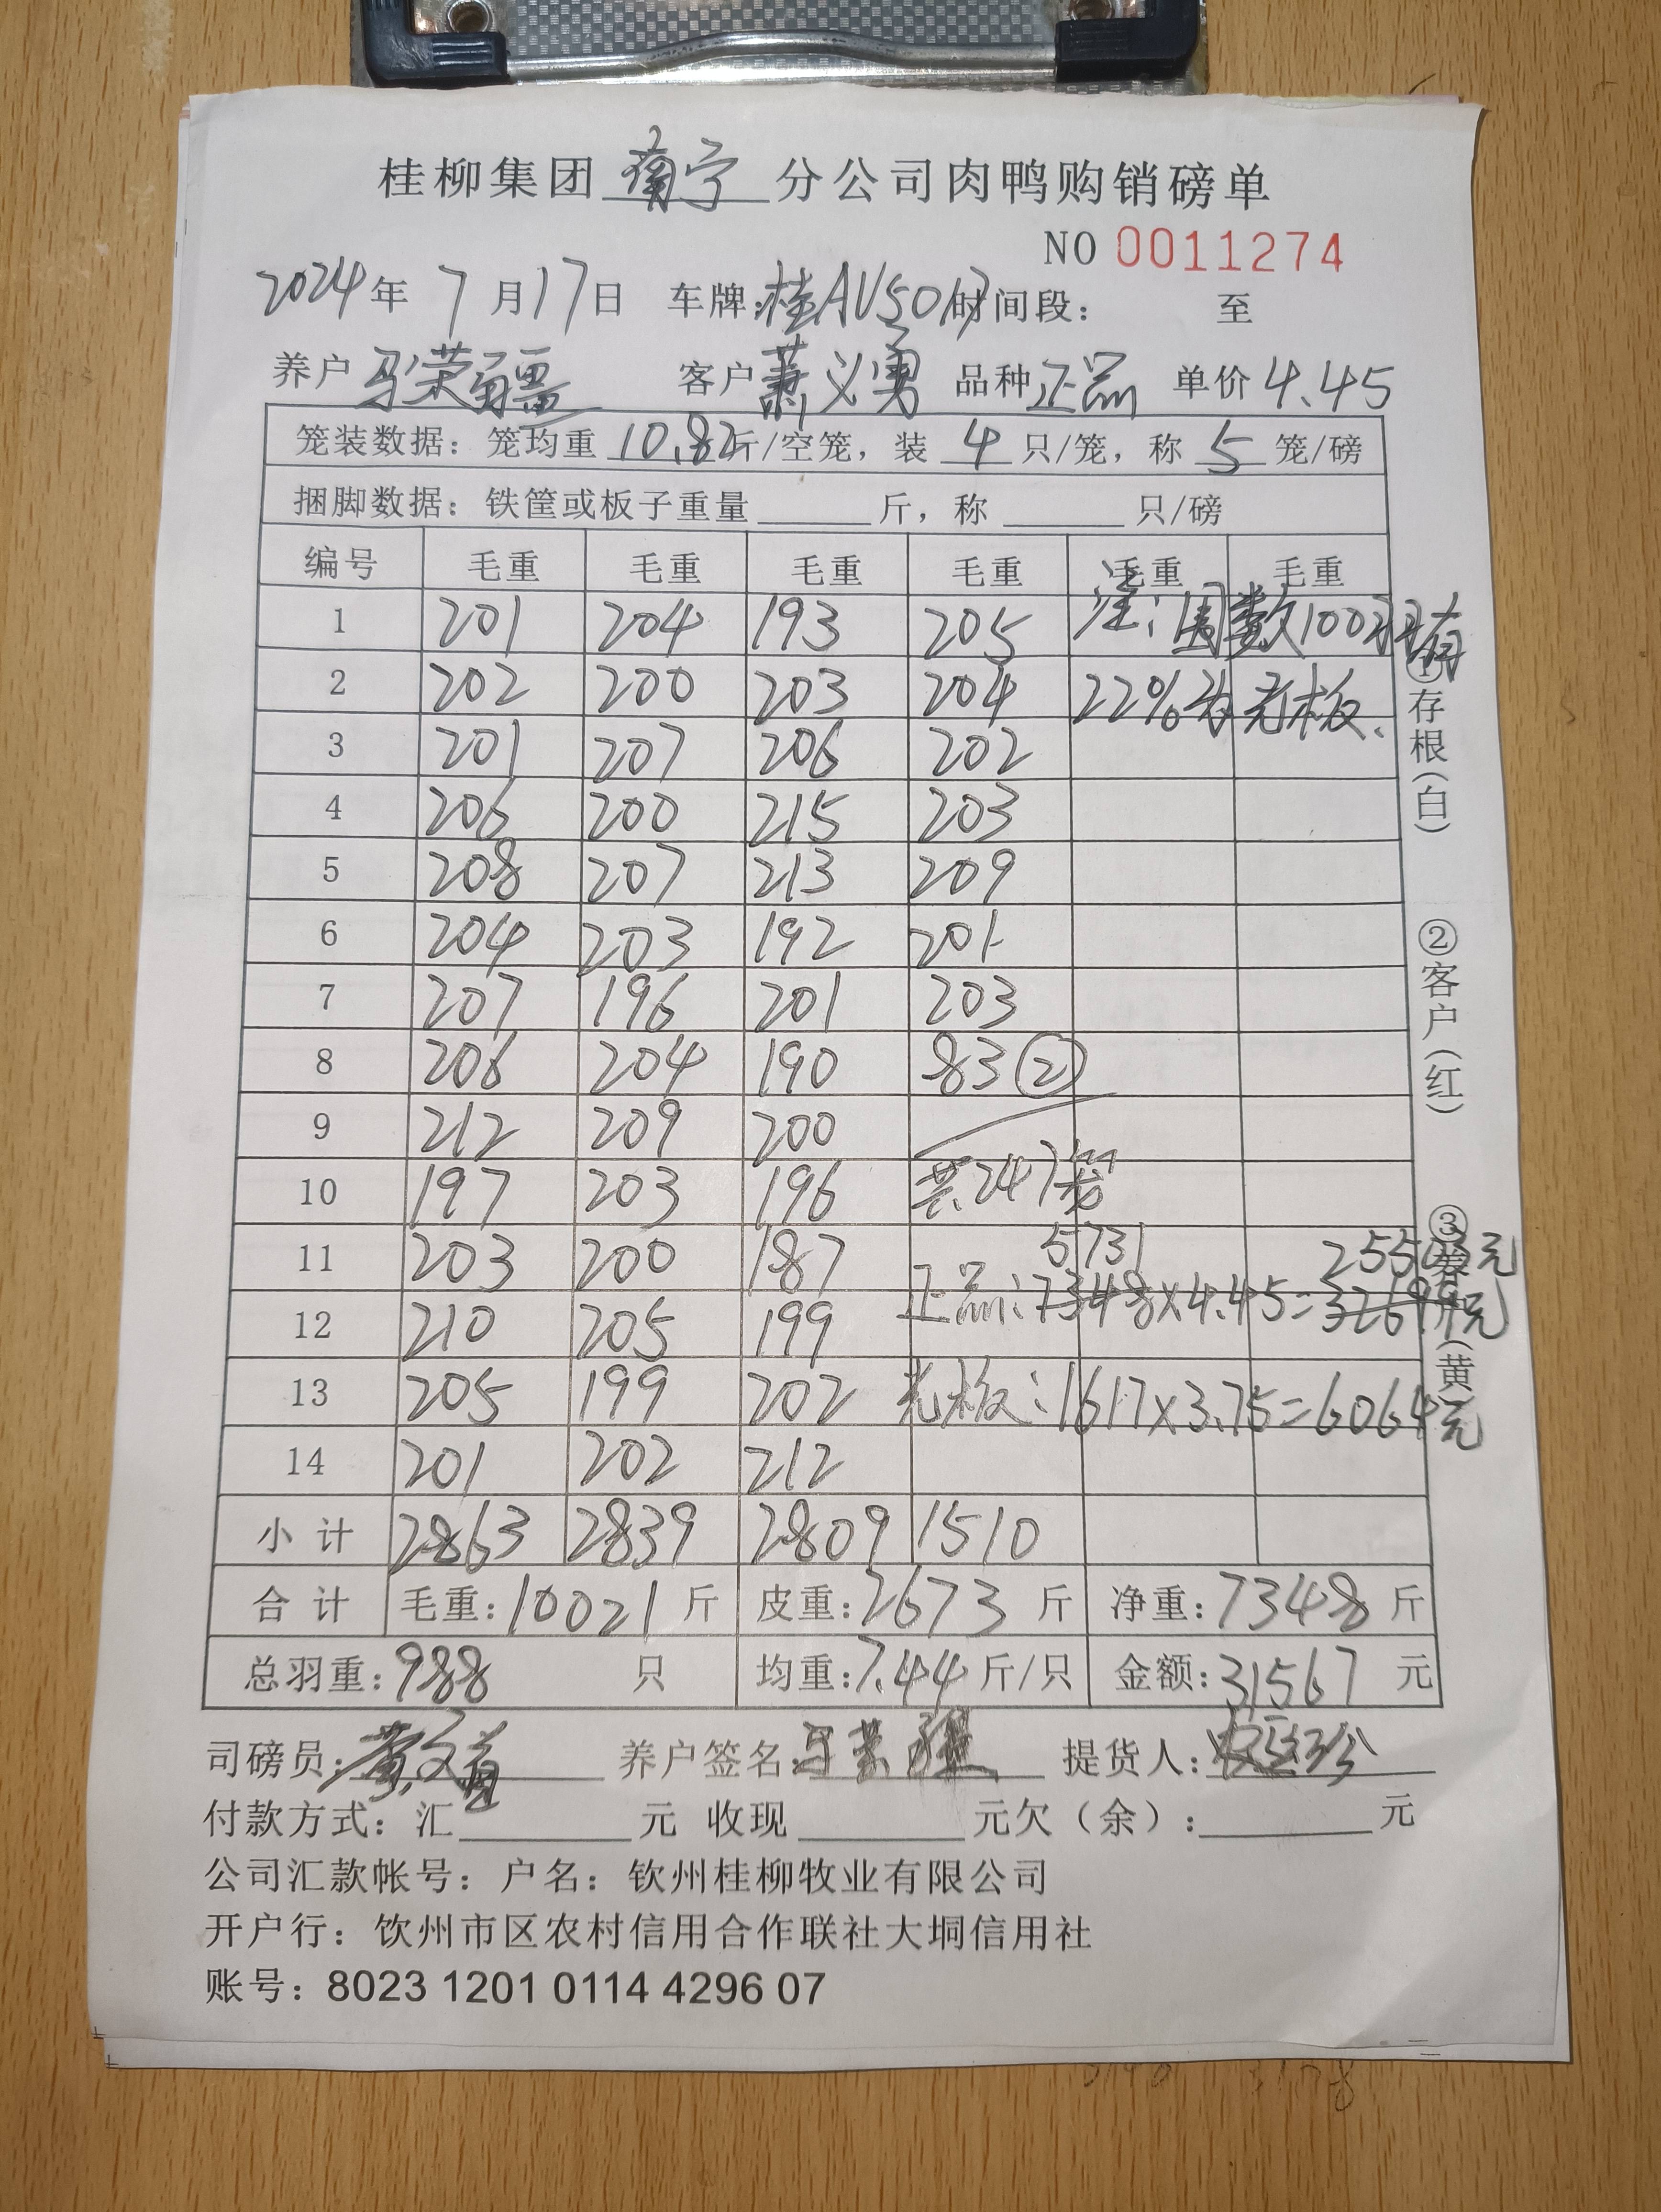 桂柳集团 南宁 分公司肉鸭购销磅单
NO 0011274
2024年 7月17日 车牌:桂AV50 时间段: 至
养户 马荣疆 客户 萧义勇 品种 正品 单价 4.45
笼装数据: 笼均重 10.82 斤/空笼, 装 4 只/笼, 称 5 笼/磅
捆脚数据: 铁筐或板子重量 斤, 称 只/磅
编号 毛重 毛重 毛重 毛重 毛重 毛重
1 201 204 193 205 注:围数100羽有
2 202 200 203 204 22%为光板.
3 201 207 206 202
4 206 200 215 203
5 208 207 213 209
6 204 203 192 201
7 207 196 201 203
8 206 204 190 83 ②
9 212 209 200
10 197 203 196 共247笼
11 203 200 187 5731
12 210 205 199 正品:7348×4.45=32699元
13 205 199 202 光板:1617×3.75=6064元
14 201 202 212
小计 2863 2839 2809 1510
合计 毛重:10021斤 皮重:2673斤 净重:7348斤
总羽重:988 只 均重:7.44斤/只 金额:31567元
①存根(白)
②客户(红)
③养(黄)
司磅员: 养户签名:马荣疆 提货人:
付款方式: 汇 元 收现 元欠(余): 元
公司汇款帐号: 户名: 钦州桂柳牧业有限公司
开户行: 饮州市区农村信用合作联社大垌信用社
账号: 8023 1201 0114 4296 07